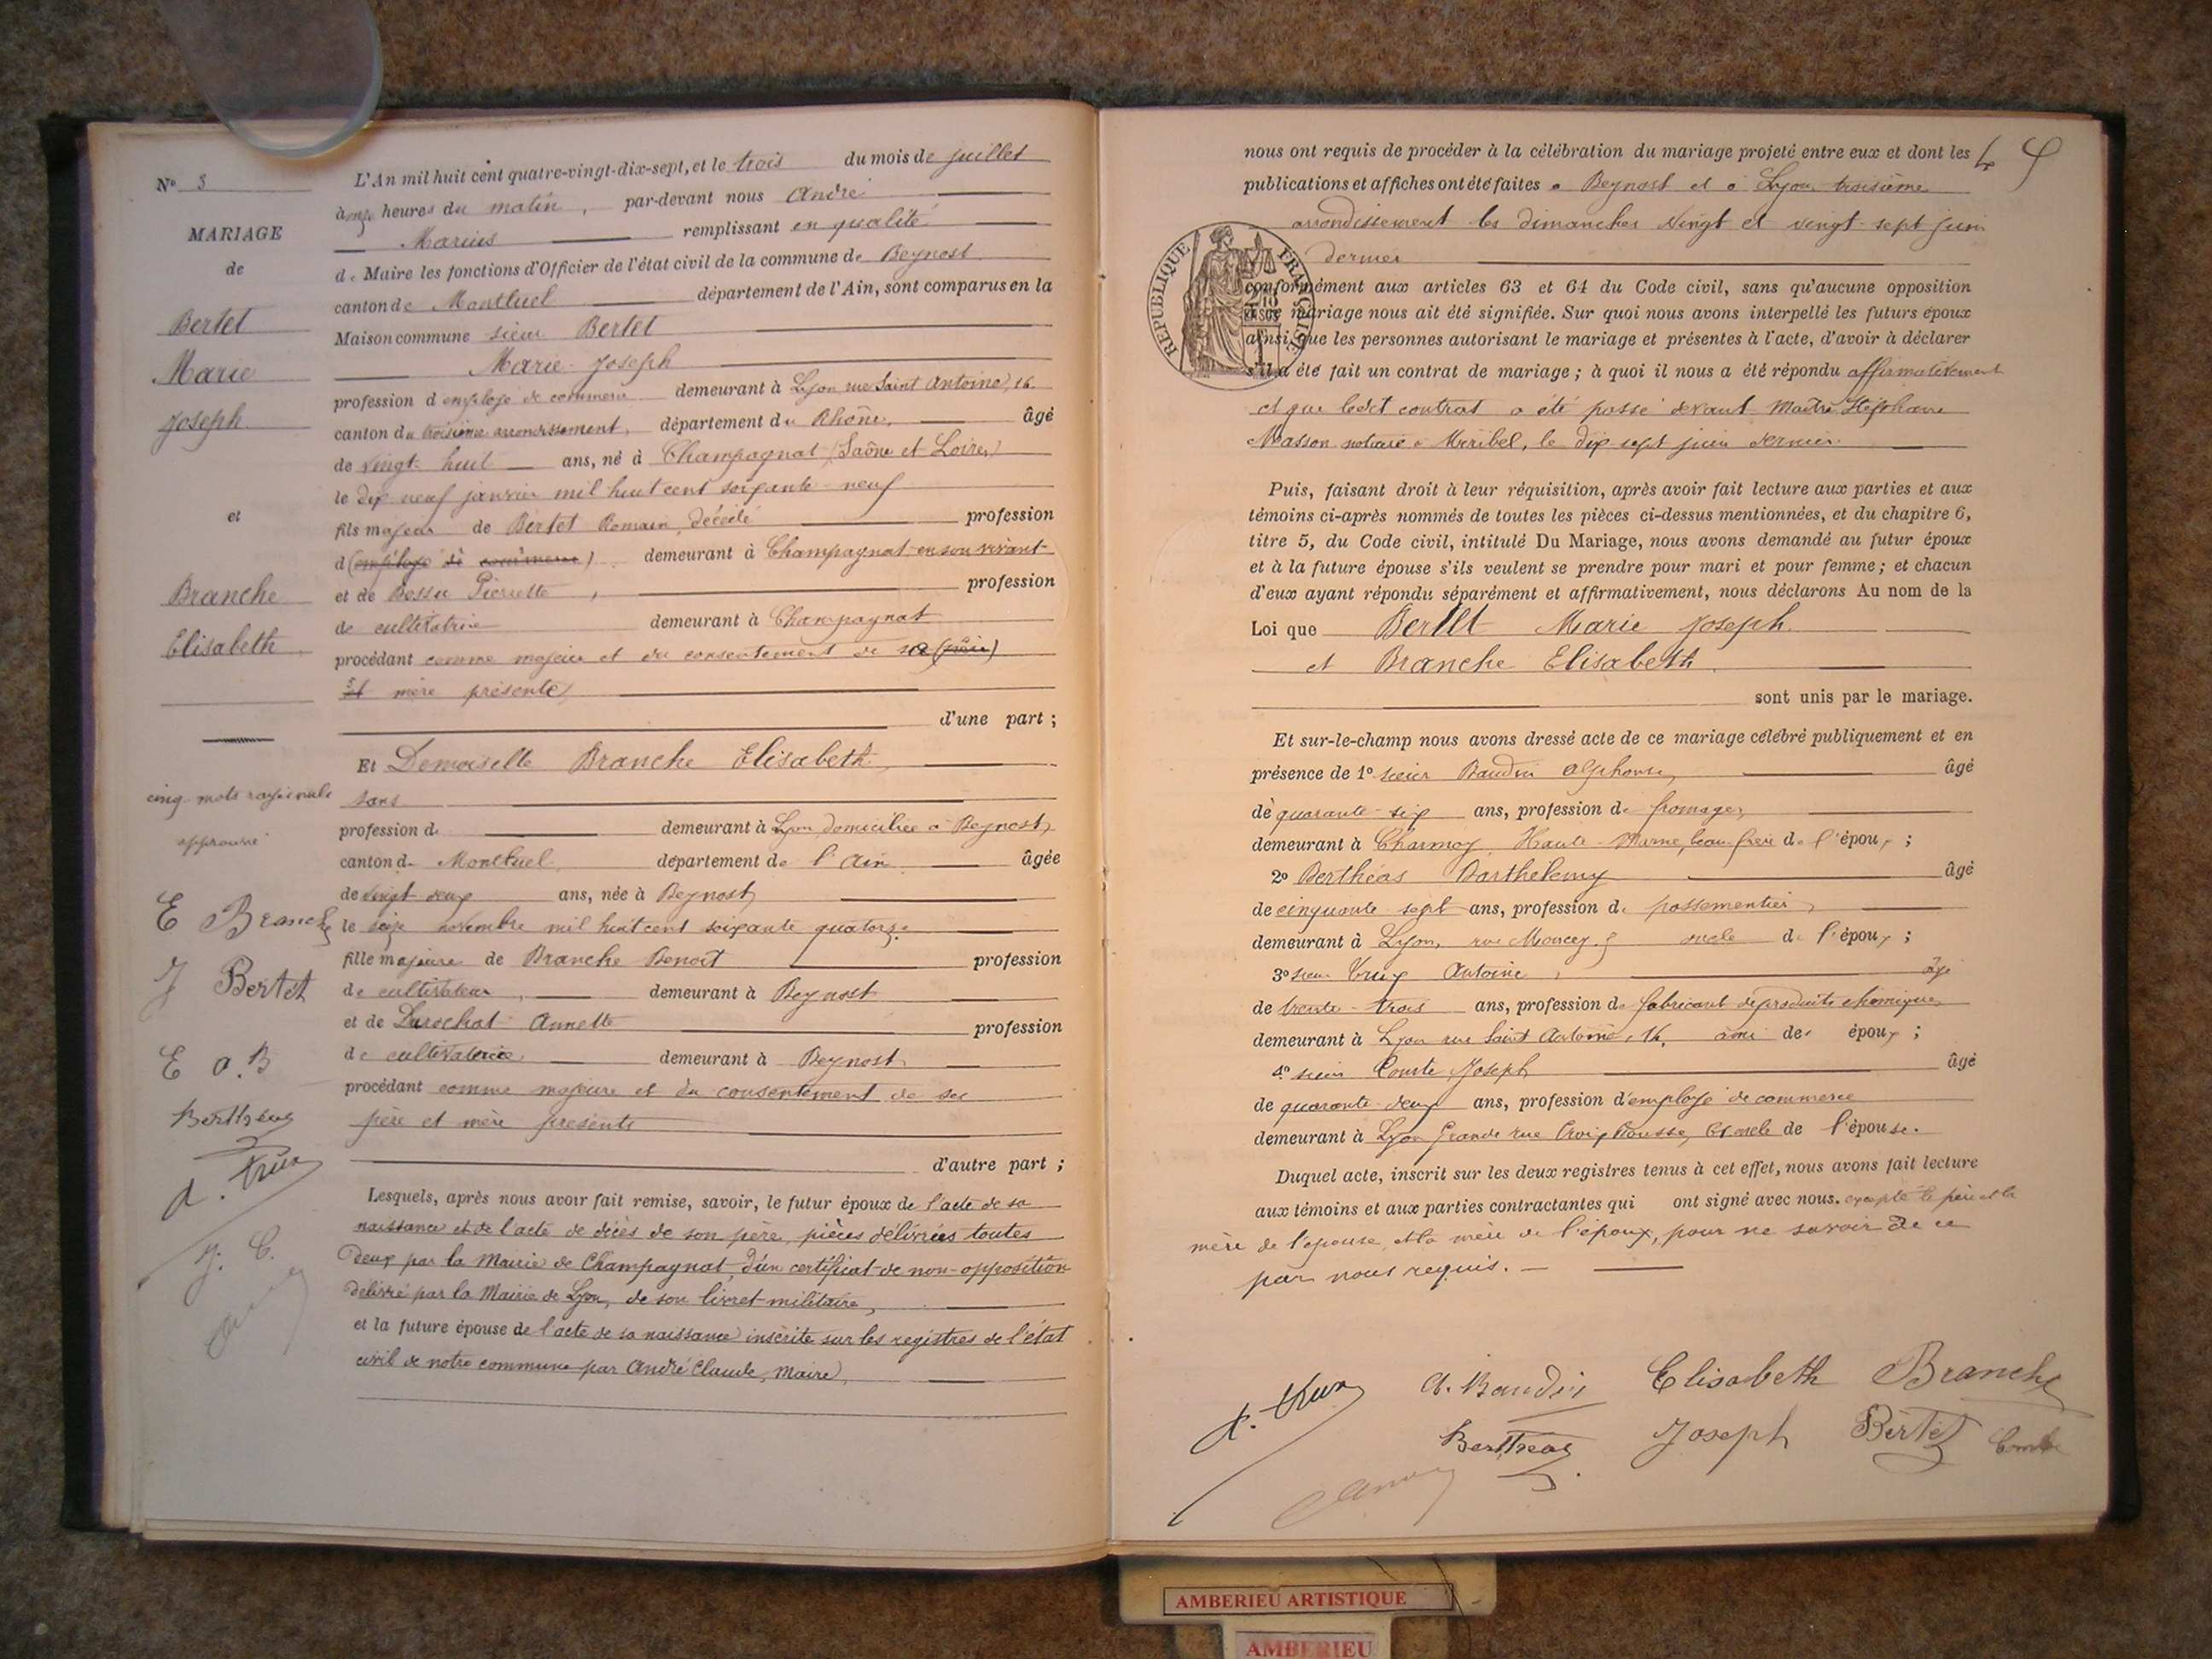 N° 3
MARIAGE
de
Bertet
Marie
Joseph
et
Branche
Elisabeth
cinq mots rayés nuls
approuvé
E Branche
J Bertet
E a. B
Bertheas
J. C.
L'An mil huit cent quatre-vingt-dix-sept, et le trois du mois de juillet
à onze heures du matin, par-devant nous André
Marius remplissant en qualité
de Maire les fonctions d'Officier de l'état civil de la commune de Beynost
canton de Montluel département de l'Ain, sont comparus en la
Maison commune sieur Bertet
Marie Joseph
profession d'employé de commerce demeurant à Lyon rue Saint Antoine, 16
canton du troisième arrondissement, département du Rhône, âgé
de vingt huit ans, né à Champagnat (Saône et Loire)
le dix neuf janvier mil huit cent soixante neuf
fils majeur de Bertet Romain, décédé profession
d (employé de commerce) demeurant à Champagnat en son vivant
et de Bessu Pierrette, profession
de cultivatrice demeurant à Champagnat
procédant comme majeur et du consentement de sa (père)
et mère présente
d'une part ;
Et Demoiselle Branche Elisabeth
sans
profession de demeurant à Lyon domiciliée à Beynost,
canton de Montluel département de l'Ain âgée
de vingt deux ans, née à Beynost,
le seize novembre mil huit cent soixante quatorze
fille majeure de Branche Benoît profession
de cultivateur, demeurant à Beynost
et de Larochat Annette profession
de cultivatrice demeurant à Beynost
procédant comme majeure et du consentement de ses
père et mère présents
d'autre part ;
Lesquels, après nous avoir fait remise, savoir, le futur époux de l'acte de sa
naissance et de l'acte de décès de son père, pièces délivrées toutes
deux par la Mairie de Champagnat, d'un certificat de non-opposition
délivré par la Mairie de Lyon, de son livret militaire,
et la future épouse de l'acte de sa naissance inscrite sur les registres de l'état
civil de notre commune par André Claude, Maire,
4
nous ont requis de procéder à la célébration du mariage projeté entre eux et dont les
publications et affiches ont été faites à Beynost et à Lyon troisième
arrondissement les dimanches vingt et vingt-sept juin
dernier
RÉPUBLIQUE FRANÇAISE
conformément aux articles 63 et 64 du Code civil, sans qu'aucune opposition
à ce mariage nous ait été signifiée. Sur quoi nous avons interpellé les futurs époux
ainsi que les personnes autorisant le mariage et présentes à l'acte, d'avoir à déclarer
s'il a été fait un contrat de mariage ; à quoi il nous a été répondu affirmativement
et que ledit contrat a été passé devant Maître Stéphane
Masson notaire à Miribel, le dix sept juin dernier.
Puis, faisant droit à leur réquisition, après avoir fait lecture aux parties et aux
témoins ci-après nommés de toutes les pièces ci-dessus mentionnées, et du chapitre 6,
titre 5, du Code civil, intitulé Du Mariage, nous avons demandé au futur époux
et à la future épouse s'ils veulent se prendre pour mari et pour femme ; et chacun
d'eux ayant répondu séparément et affirmativement, nous déclarons Au nom de la
Loi que Bertet Marie Joseph
et Branche Elisabeth
sont unis par le mariage.
Et sur-le-champ nous avons dressé acte de ce mariage célébré publiquement et en
présence de 1° sieur Baudin Alphonse, âgé
de quarante-six ans, profession de fromager,
demeurant à Charmoy Haute-Marne, beau-frère de l'époux ;
2° Berthéas Barthélemy âgé
de cinquante sept ans, profession de passementier,
demeurant à Lyon, rue Moncey, oncle de l'époux ;
3° sieur Antoine, âgé
de trente-trois ans, profession de fabricant de produits chimiques
demeurant à Lyon rue Saint Antoine, 16, ami des époux ;
4° sieur Comte Joseph âgé
de quarante-deux ans, profession d'employé de commerce
demeurant à Lyon Grande rue Croix Rousse, oncle de l'épouse.
Duquel acte, inscrit sur les deux registres tenus à cet effet, nous avons fait lecture
aux témoins et aux parties contractantes qui ont signé avec nous. excepté le père et la
mère de l'épouse, et la mère de l'époux, pour ne savoir de ce
par nous requis.
A. Baudin Elisabeth Branche
Bertheas Joseph Bertet Comte
AMBERIEU ARTISTIQUE
AMBERIEU